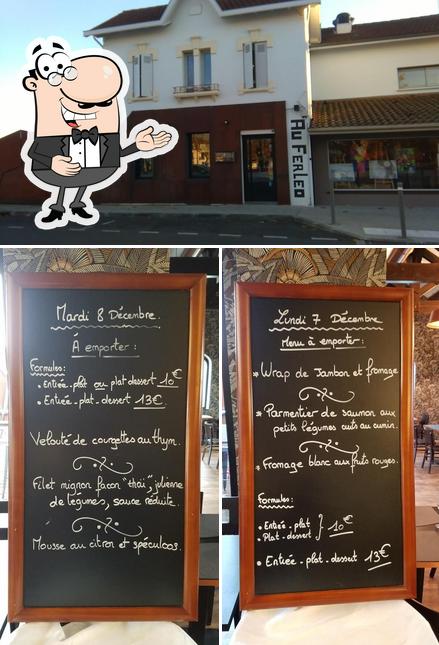 Au Ferleo
Mardi 8 Décembre.
À emporter :
Formules :
• Entrée-plat ou plat-dessert 10€
• Entrée-plat-dessert 13€
Velouté de courgettes au thym.
Filet mignon façon "thaï", julienne
de légumes, sauce réduite.
Mousse au citron et spéculoos.
Lundi 7 Décembre
Menu à emporter :
* Wrap de Jambon et fromage
* Parmentier de saumon aux
petits légumes cuits au cumin.
* Fromage blanc aux fruits rouges.
Formules :
• Entrée-plat
• Plat-dessert } 10€
• Entrée-plat-dessert 13€